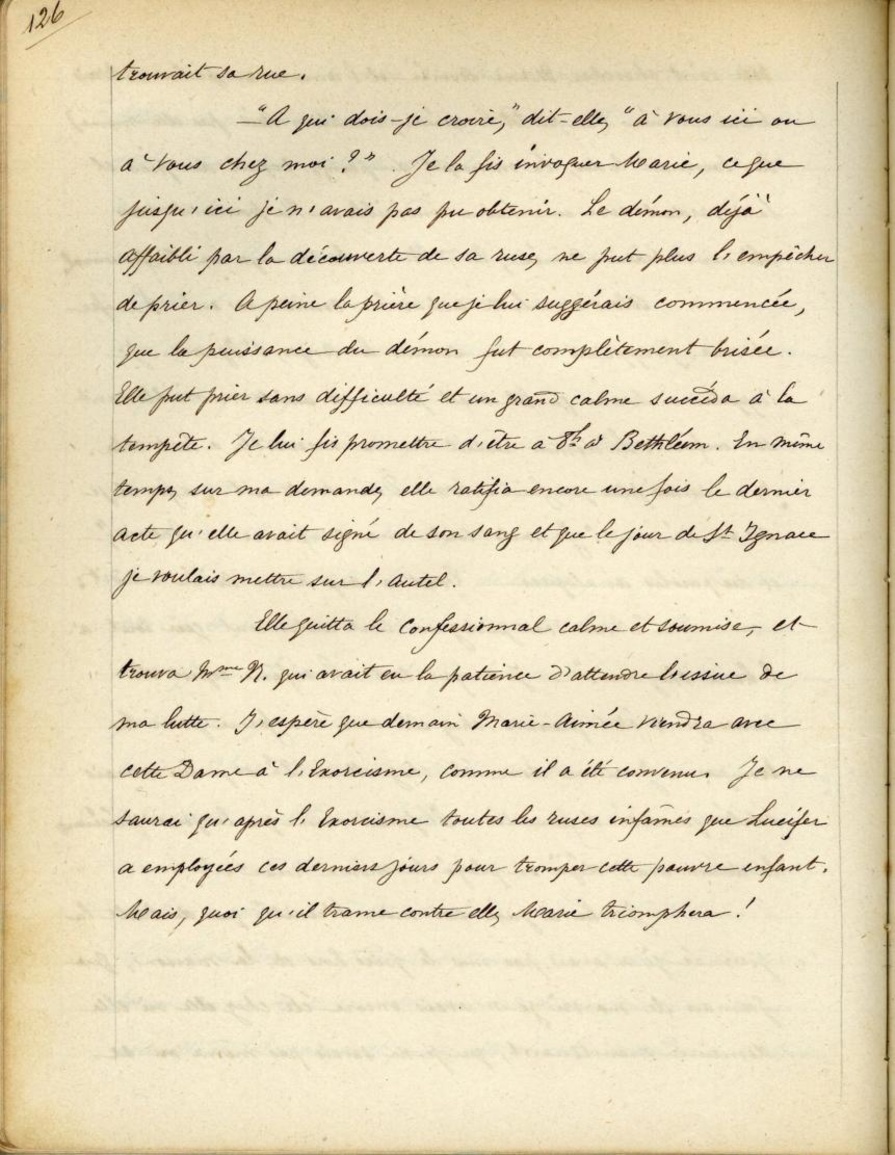 126
trouvait sa rue.
— "A qui dois-je croire," dit-elle, "à vous ici ou
à vous chez moi ?" Je la fis invoquer Marie, ce que
jusqu'ici je n'avais pas pu obtenir. Le démon, déjà
affaibli par la découverte de sa ruse, ne put plus l'empêcher
de prier. A peine la prière que je lui suggérais commencée,
que la puissance du démon fut complètement brisée.
Elle put prier sans difficulté et un grand calme succéda à la
tempête. Je lui fis promettre d'être à 8h à Bethléem. En même
temps, sur ma demande, elle ratifia encore une fois le dernier
acte qu'elle avait signé de son sang et que le jour de St Ignace
je voulais mettre sur l'autel.
Elle quitta le Confessionnal calme et soumise, et
trouva Mme N. qui avait eu la patience d'attendre l'issue de
ma lutte. J'espère que demain Marie-Aimée viendra avec
cette Dame à l'Exorcisme, comme il a été convenu. Je ne
saurai qu'après l'Exorcisme toutes les ruses infâmes que Lucifer
a employées ces derniers jours pour tromper cette pauvre enfant.
Mais, quoi qu'il trame contre elle, Marie triomphera !